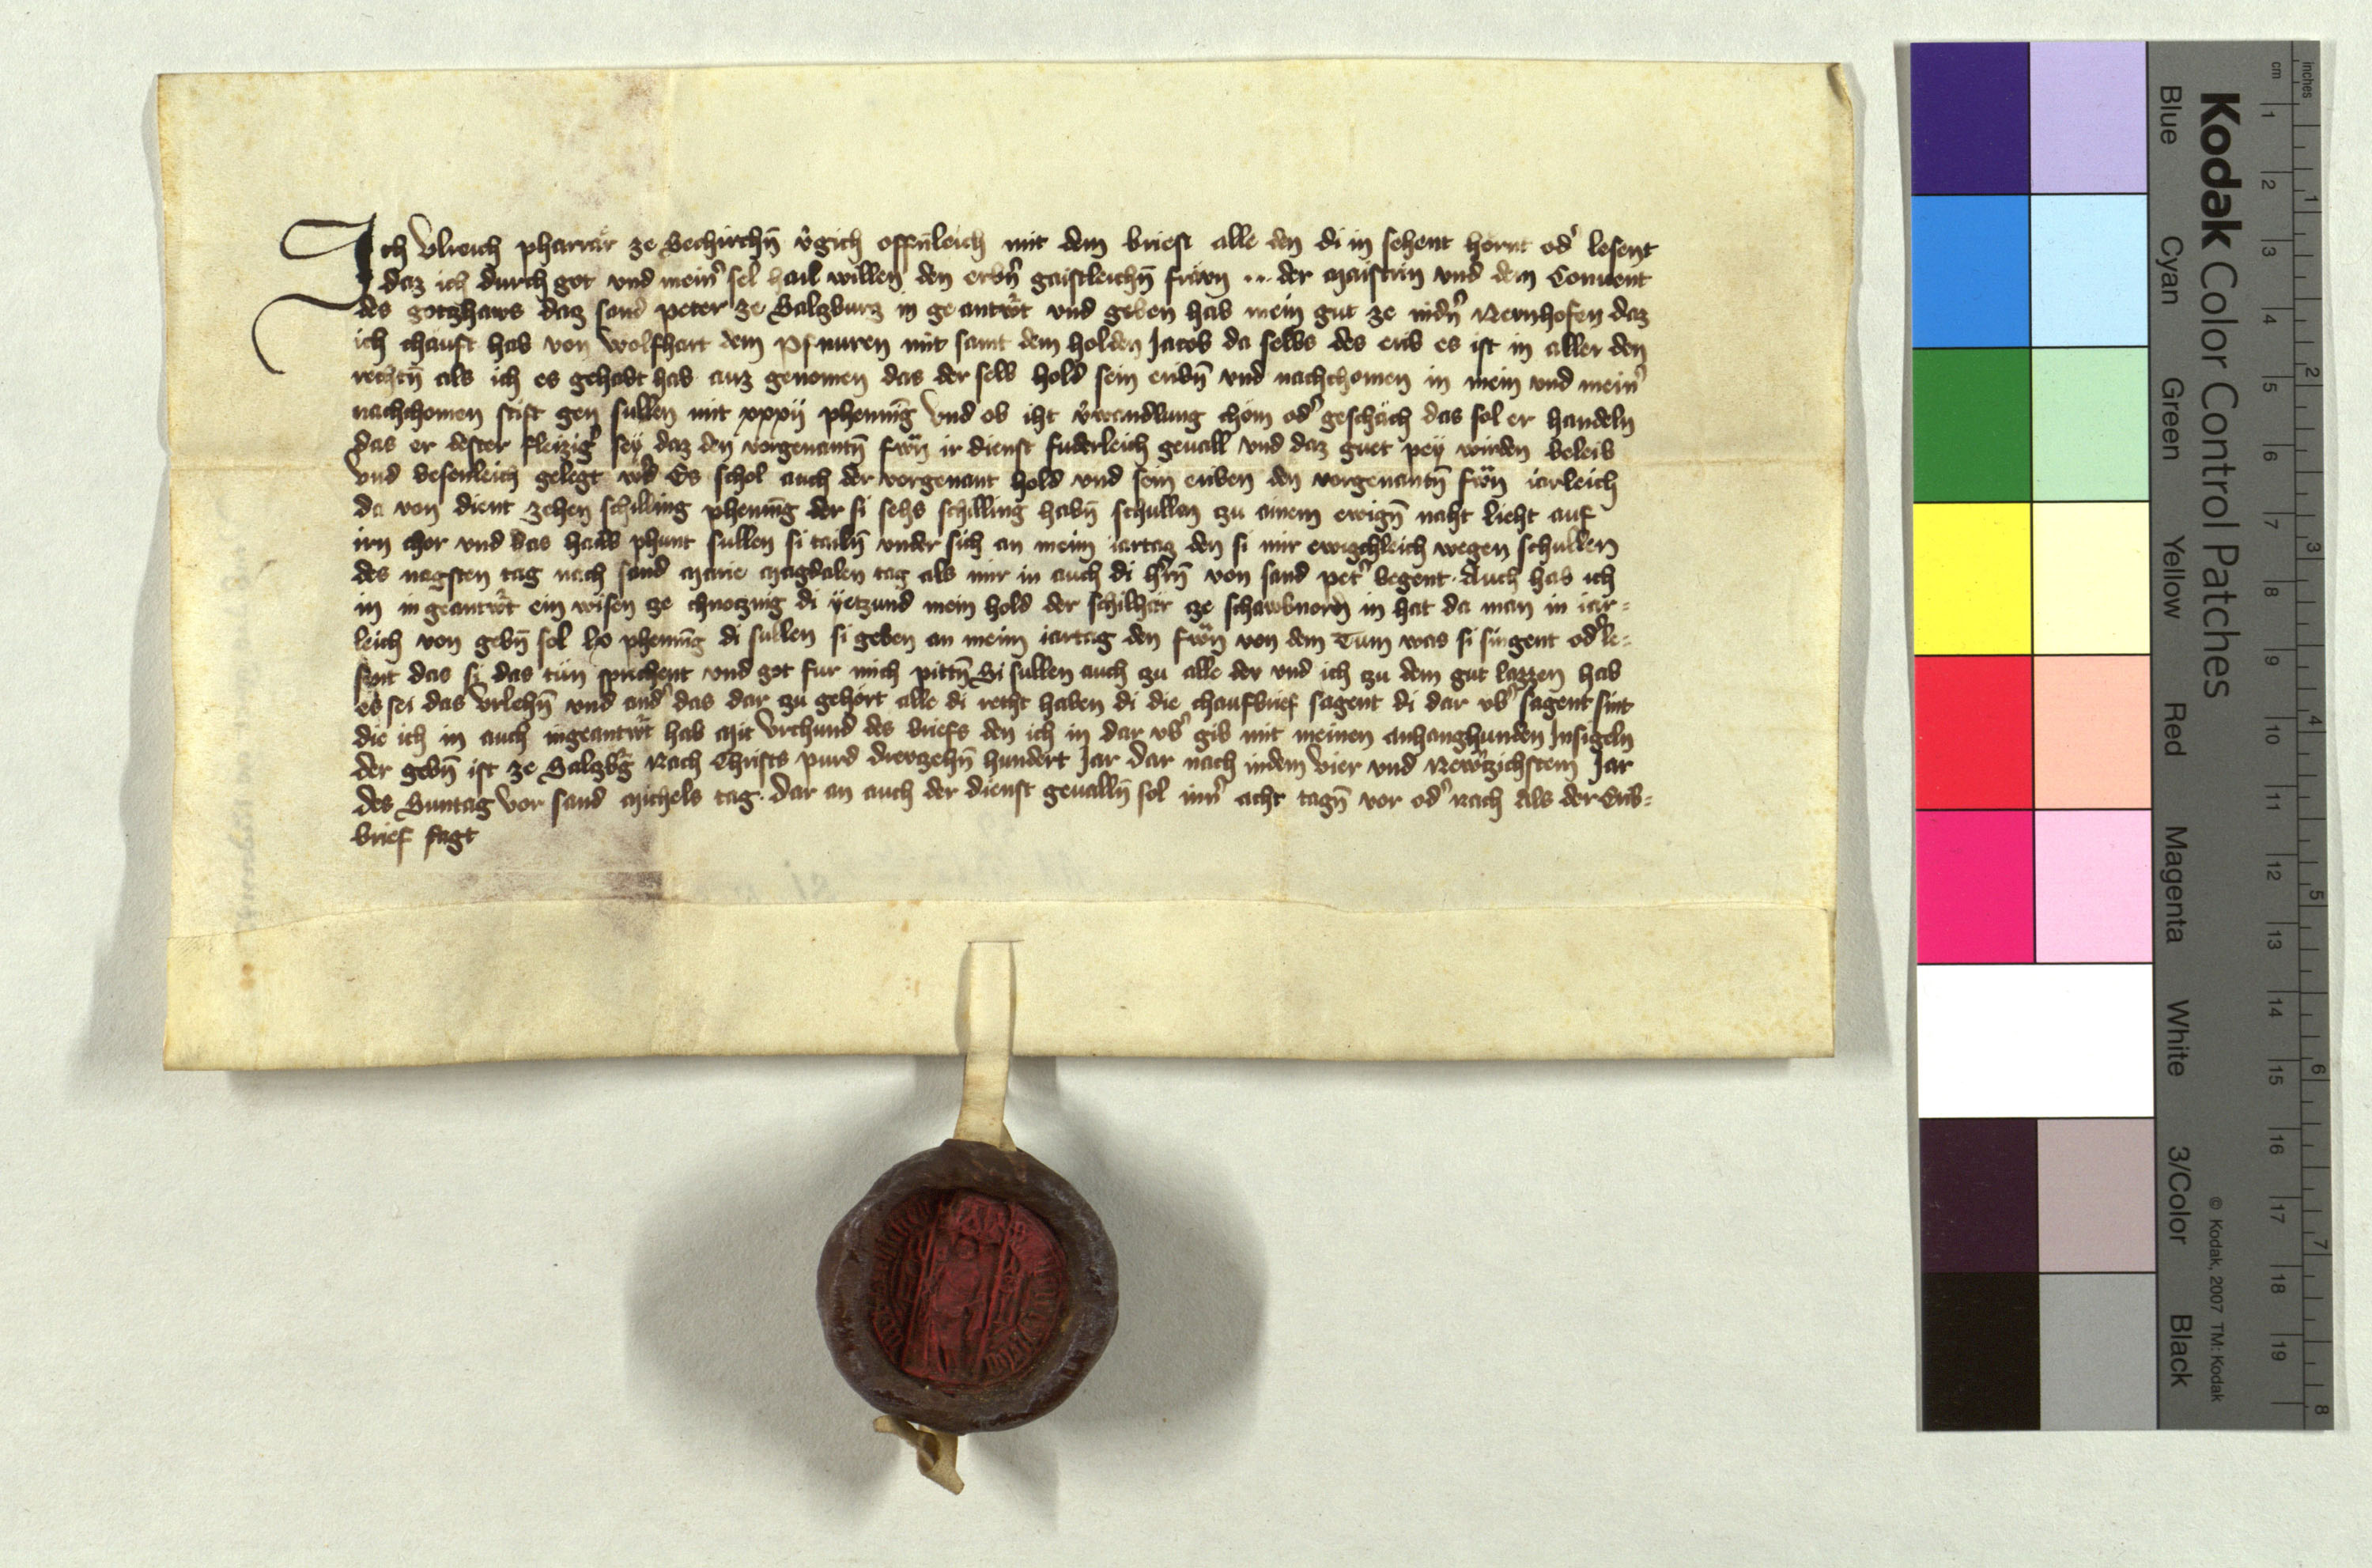 Ich Vlreich pharrär ze Sechirchn̄ v̉gich offnleich mit dem brieft alle den di in sehent hörnt od̉ lesent
daz ich durch got vnd mein̉ sel hail willen den erbn̉ gaistleichn̄ fräwn ... der Maistrin vnd dem Conuent
des gotzhaws daz sand peter ze Salzburg in geantw̉t vnd geben hab mein gut ze nidn̉ Nernhofen daz
ich chäuft hab von Wolfhart dem Pfnuren mit samt dem holden Jacob da selbs des erib es ist in aller den
rechtn̄ als ich es gehabt hab auz genomen das der selb hold sein eribn̄ vnd nachchomen in mein vnd mein̉
nachchomen stift gen sullen mit xxxij phennīg Vnd ob iht v̉wandlung chöm od̉ geschäch das sol er handeln
das er dester fleizig̉ sey daz den vorgenantn̄ frẅn ir dienst fuderleich geuall vnd daz guet pey wirden beleib
Vnd besenleich gelegt w̉d Es schol auch der vorgenant hold vnd sein eriben den vorgenantn̄ frẅn iarleich
da von dient zehen schilling phennīg der si sehs schilling habn̄ schullen zu ainem ewign̄ naht lieht auf
irn chor vnd das halb phunt sullen si tailn̄ vnder sich an meim iartag den si mir ewigchleich wegen schullen
des nagsten tag nach sand Marie Magdalen tag als mir in auch di h̉rn̄ von sand pet̉ begent. Auch hab ich
in in geantw̉t ein wisen ze chnotzing di yetzund mein hold der schilhär ze schawbnorn in hat da man in iar=
leich von gebn̄ sol lx phennīg di sullen si geben an meim iartag den frẅn von dem Tum was si singent od̉ le=
sent das si das tün sprechent vnd got fur mich pittn̄ Si sullen auch zu alle der vnd ich zu dem gut lazzen hab
es sei das Vrlehn̄ vnd and̉ das dar zu gehört alle di recht haben di die chaufbrief sagent di dar vb̉ sagent sint
die ich in auch ingeantw̉t hab Mit Vrchund des briefs den ich in dar vb̉ gib mit meinen anhanghunden Insigeln
der gebn̄ ist ze Salzb̉g Nach Christs purd drewzehn̄ hundert Jar dar nach indem Vier vnd Newtzichstem Jar
des Suntag Vor sand Michels tag. Dar an auch der dienst geualln̄ sol inn̉ acht tagn̄ vor od̉ nach als der Erib=
brief sagt
Kodak Color Control Patches
Blue Cyan Green Yellow Red Magenta White 3/Color Black
© Kodak, 2007 TM: Kodak
inches 1 2 3 4 5 6 7 8
cm 1 2 3 4 5 6 7 8 9 10 11 12 13 14 15 16 17 18 19